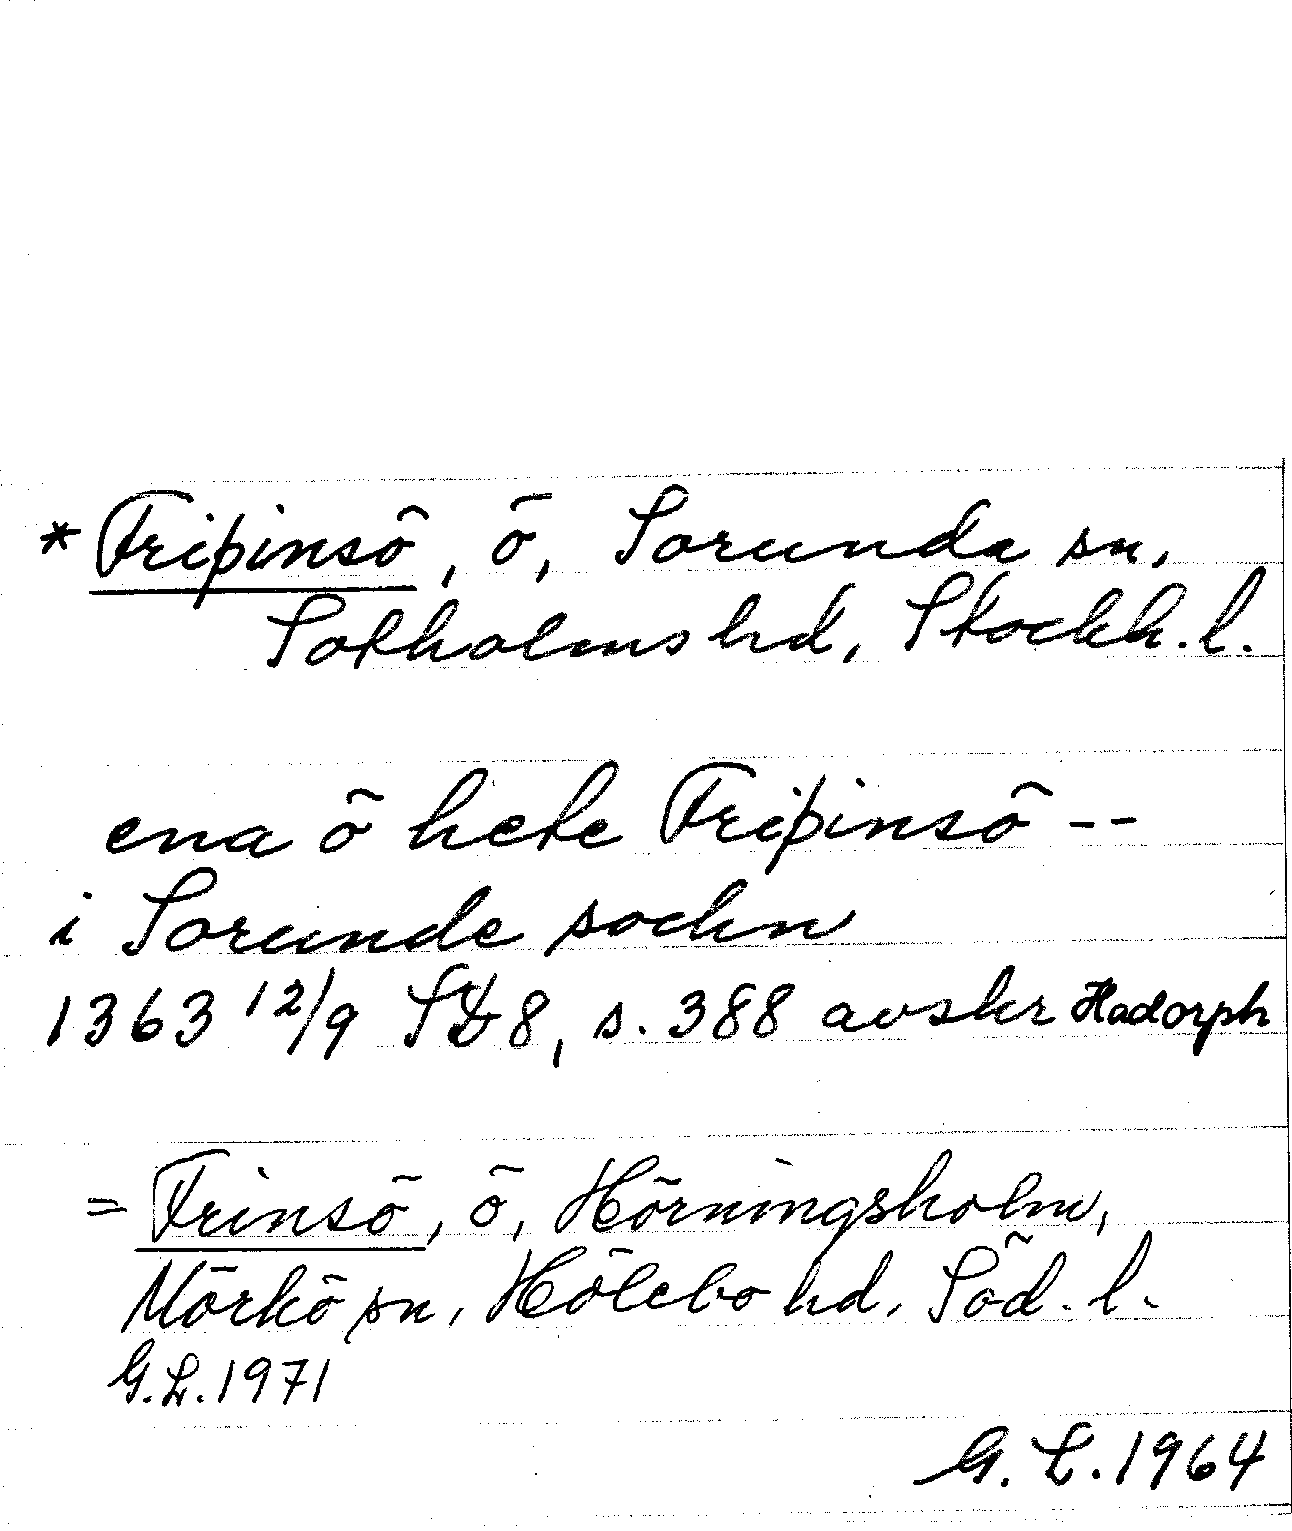 *Triþinsö, ö, Sorunda sn,
Sotholms hd, Stockh. l.
ena ö hete Triþinsö --
i Sorunde sochn
1363 12/9 SD 8, s. 388 avskr Hadorph
= Trinsö, ö, Hörningsholm,
Mörkö sn, Hölebo hd, Söd. l.
G.L. 1971
G. L. 1964